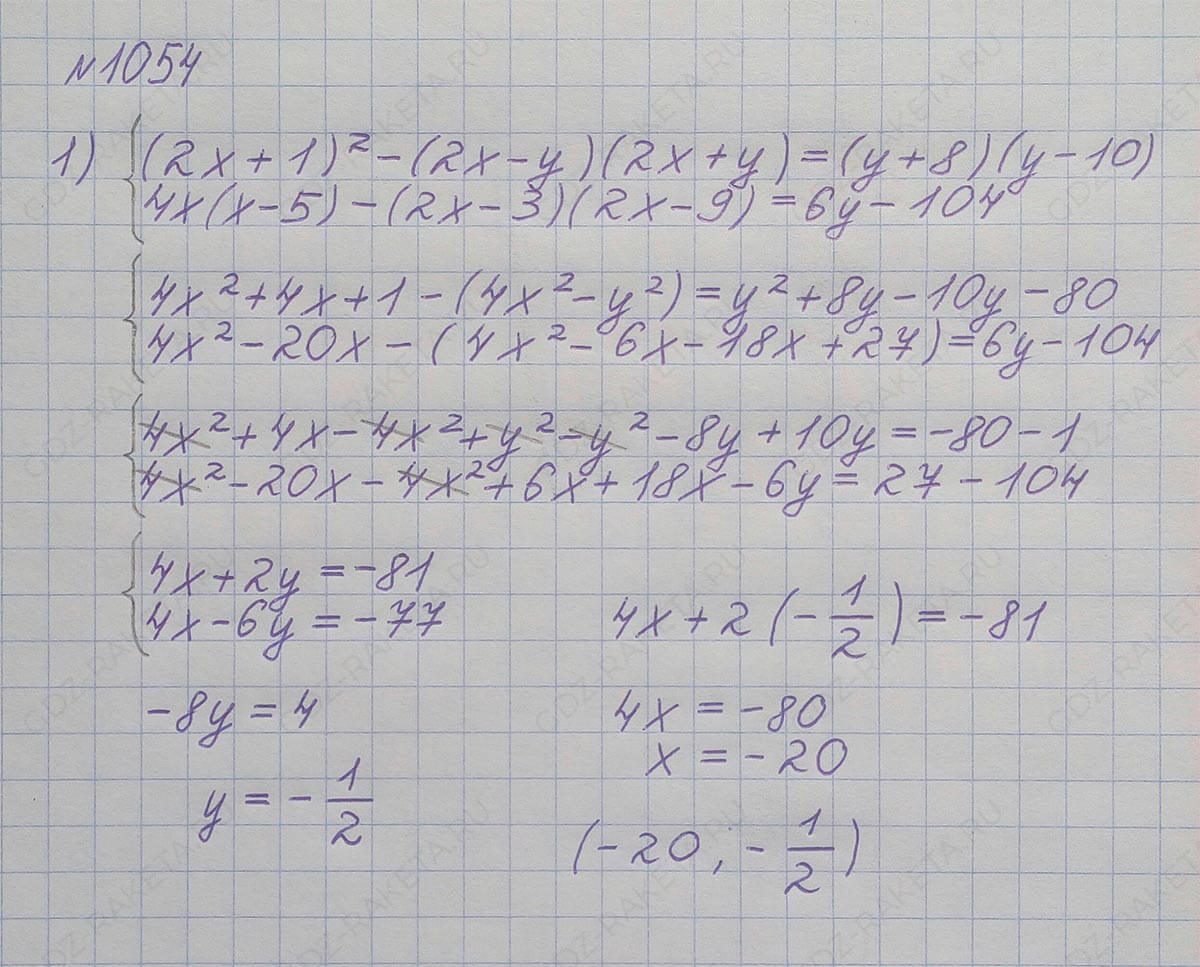 №1054
1) (2x+1)²-(2x-y)(2x+y)=(y+8)(y-10)
4x(x-5)-(2x-3)(2x-9)=6y-104
4x²+4x+1-(4x²-y²)=y²+8y-10y-80
4x²-20x-(4x²-6x-18x+27)=6y-104
4x²+4x-4x²+y²-y²-8y+10y=-80-1
4x²-20x-4x²+6x+18x-6y=27-104
4x+2y=-81
4x-6y=-77
-8y=4
y=-1/2
4x+2(-1/2)=-81
4x=-80
x=-20
(-20;-1/2)
GDZ-RAKETA.RU